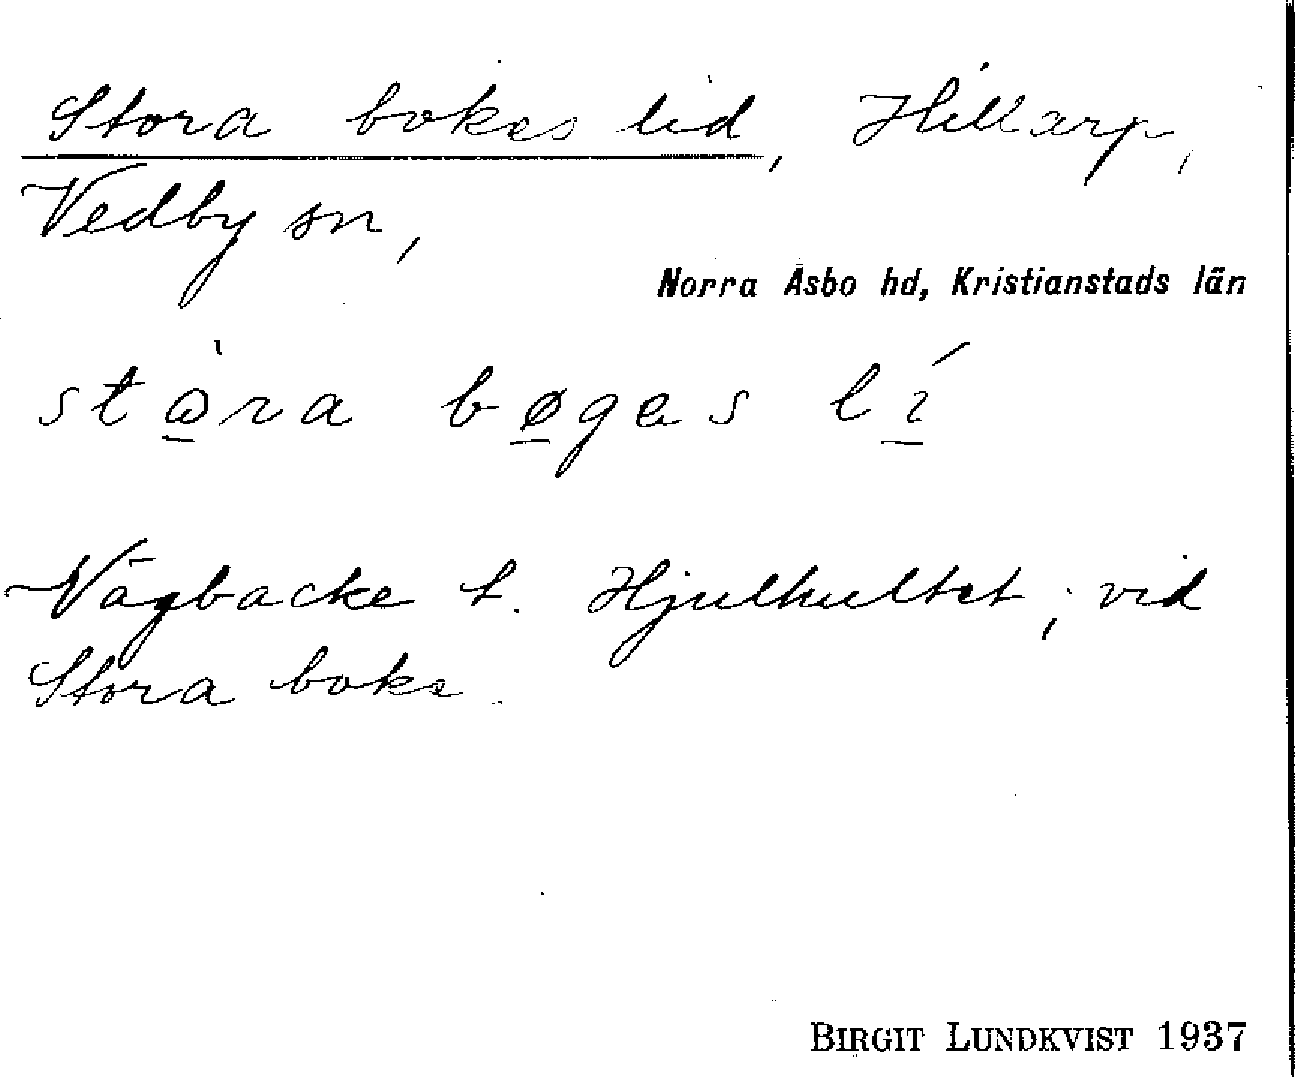 Stora bokes lid, Hillarp,
Vedby sn,
Norra Åsbo hd, Kristianstads län
stòra bøgas lí
Vägbacke t. Hjulhultet; vid
Stora boke.
BIRGIT LUNDKVIST 1937